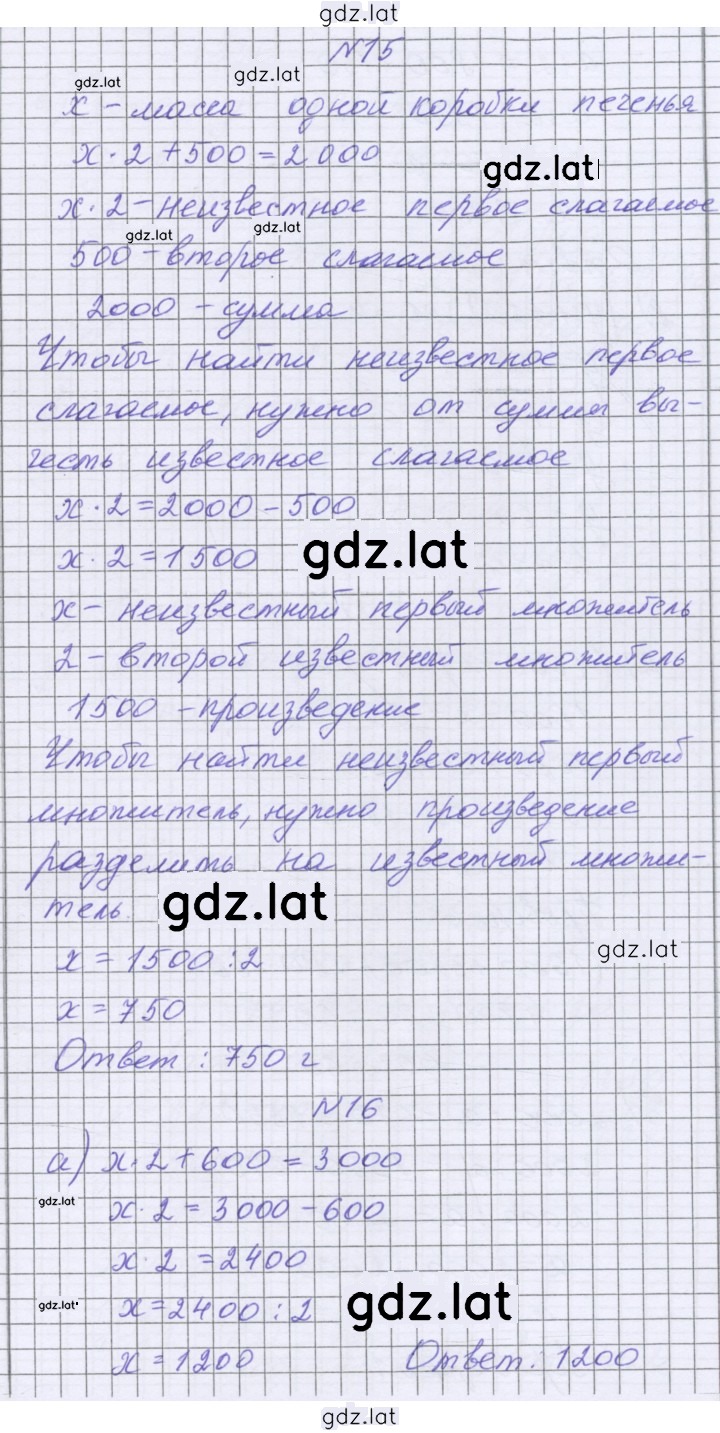 gdz.lat
N15
gdz.lat gdz.lat
x - масса одной коробки печенья
x · 2 + 500 = 2000
gdz.lat
x · 2 - неизвестное первое слагаемое
gdz.lat gdz.lat
500 - второе слагаемое
2000 - сумма
Чтобы найти неизвестное первое
слагаемое, нужно от суммы вы-
честь известное слагаемое
x · 2 = 2000 - 500
x · 2 = 1500 gdz.lat
x - неизвестный первый множитель
2 - второй известный множитель
1500 - произведение
Чтобы найти неизвестный первый
множитель, нужно произведение
разделить на известный множи-
тель. gdz.lat
x = 1500 : 2 gdz.lat
x = 750
Ответ : 750 г
N16
а) x · 2 + 600 = 3000
gdz.lat x · 2 = 3000 - 600
x · 2 = 2400
gdz.lat x = 2400 : 2 gdz.lat
x = 1200 Ответ : 1200
gdz.lat